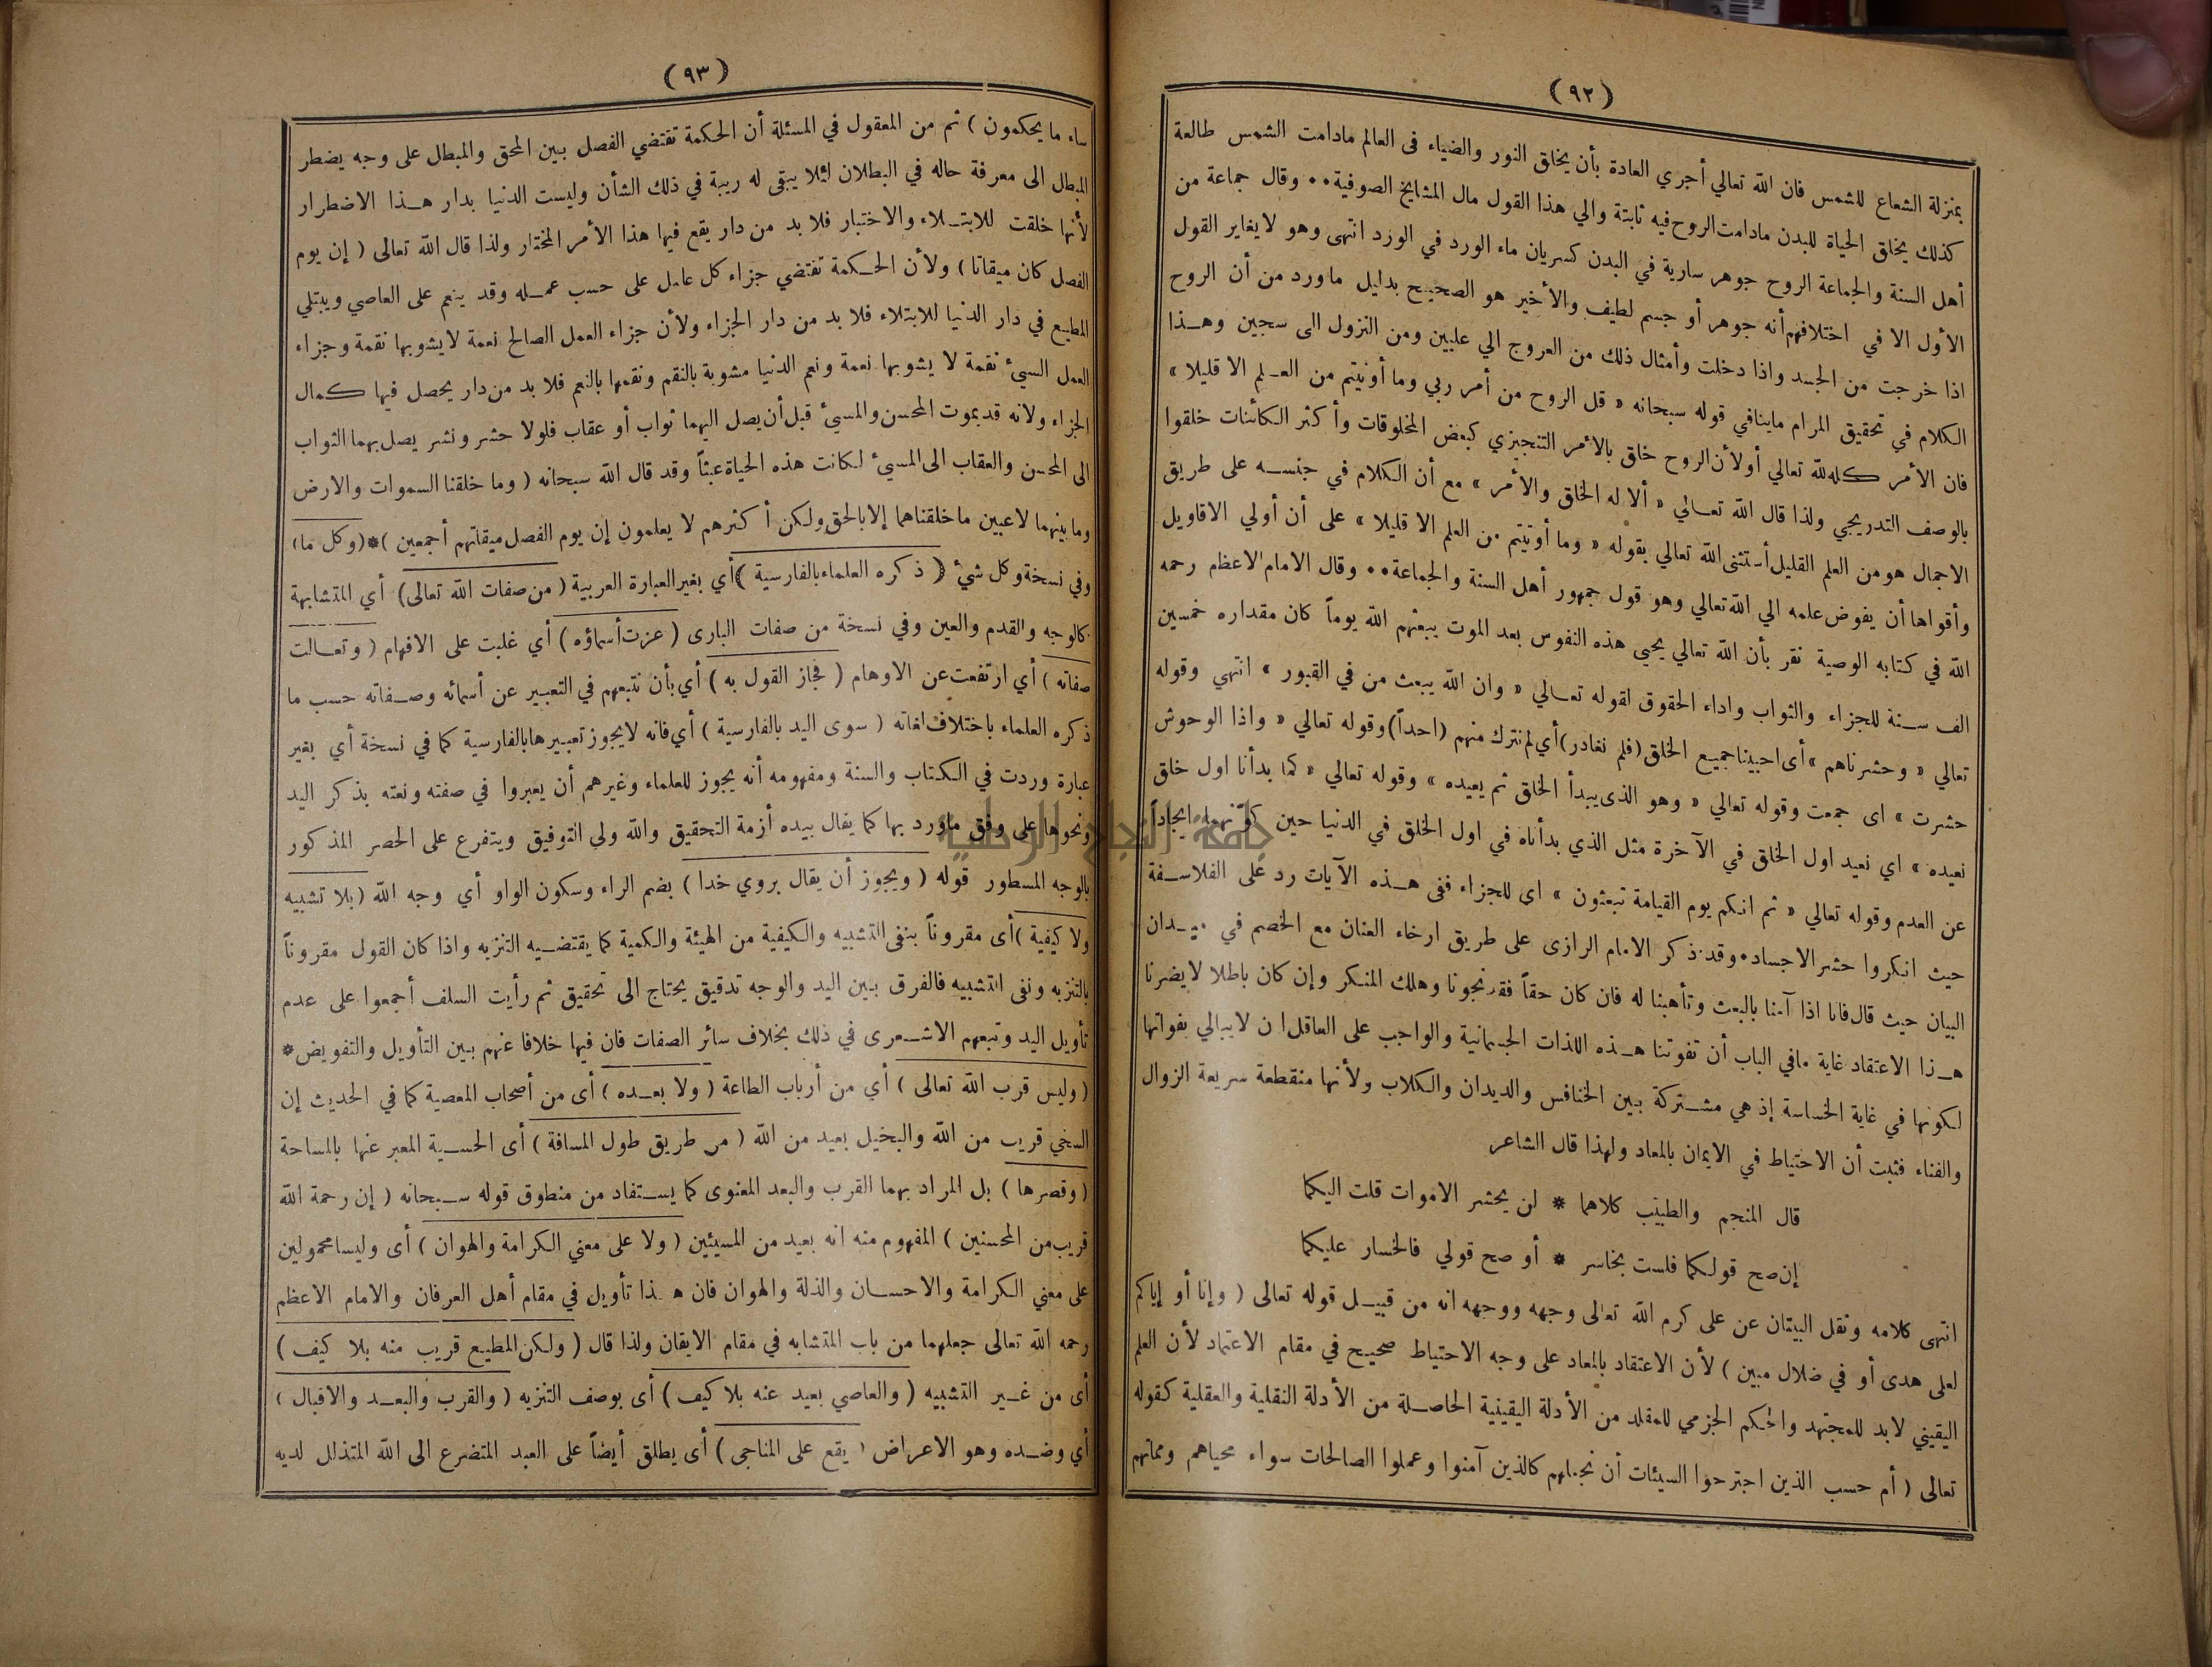 (٩٢)
بمنزلة الشعاع للشمس فان الله تعالي أجري العادة بأن يخلق النور والضياء فى العالم مادامت الشمس طالعة
كذلك يخلق الحياة للبدن مادامت الروح فيه ثابتة والي هذا القول مال المشايخ الصوفية•• وقال جماعة من
أهل السنة والجماعة الروح جوهر سارية في البدن كسريان ماء الورد في الورد انتهى وهو لا يغاير القول
الأول الا في اختلافهم أنه جوهر أو جسم لطيف والأخير هو الصحيح بدليل ماورد من أن الروح
اذا خرجت من الجسد واذا دخلت وأمثال ذلك من العروج الي عليين ومن النزول الى سجين وهذا
الكلام في تحقيق المرام ماينافي قوله سبحانه « قل الروح من أمر ربي وما أوتيتم من العلم الا قليلا »
فان الأمر كله لله تعالي أولأن الروح خلق بالأمر التنجيزي كبعض المخلوقات وأكثر الكائنات خلقوا
بالوصف التدريجي ولذا قال الله تعالي « ألا له الخلق والأمر » مع أن الكلام في جنسه على طريق
الاجمال هو من العلم القليل أستثنى الله تعالي بقوله « وما أوتيتم من العلم الا قليلا » على أن أولي الاقاويل
وأقواها أن يفوض علمه الي الله تعالي وهو قول جمهور أهل السنة والجماعة•• وقال الامام الاعظم رحمه
الله في كتابه الوصية نقر بأن الله تعالي يحيي هذه النفوس بعد الموت يبعثهم الله يوماً كان مقداره خمسين
الف سنة للجزاء والثواب واداء الحقوق لقوله تعالي « وان الله يبعث من في القبور » انتهي وقوله
تعالي « وحشرناهم » أى احيينا جميع الخلق (فلم نغادر) أي لم نترك منهم (احداً) وقوله تعالي « واذا الوحوش
حشرت » اى جمعت وقوله تعالي « وهو الذى يبدأ الخلق ثم يعيده » وقوله تعالي « كما بدأنا اول خلق
نعيده » اي نعيد اول الخلق في الآخرة مثل الذي بدأناه في اول الخلق في الدنيا حين كونهما ايجاداً
عن العدم وقوله تعالي « ثم انكم يوم القيامة تبعثون » اى للجزاء ففى هذه الآيات رد على الفلاسفة
حيث انكروا حشر الاجساد• وقد ذكر الامام الرازى على طريق ارخاء العنان مع الخصم في ميدان
البيان حيث قال فانا اذا آمنا بالبعث وتأهبنا له فان كان حقاً فقد نجونا وهلك المنكر وإن كان باطلا لا يضرنا
هذا الاعتقاد غاية مافي الباب أن تفوتنا هذه اللذات الجسمانية والواجب على العاقل ان لا يبالي بفواتها
لكونها في غاية الخساسة إذ هي مشتركة بين الخنافس والديدان والكلاب ولأنها منقطعة سريعة الزوال
والفناء فثبت أن الاحتياط في الايمان بالمعاد ولهذا قال الشاعر
قال المنجم والطبيب كلاهما * لن يحشر الاموات قلت اليكما
إن صح قولكما فلست بخاسر * أو صح قولي فالخسار عليكما
انتهى كلامه ونقل البيتان عن على كرم الله تعالى وجهه ووجهه انه من قبيل قوله تعالى ( وإنا أو إياكم
لعلى هدى أو في ضلال مبين ) لأن الاعتقاد بالمعاد على وجه الاحتياط صحيح في مقام الاعتماد لأن العلم
اليقيني لابد للمجتهد والحكم الجزمي للمقلد من الأدلة اليقينية الحاصلة من الأدلة النقلية والعقلية كقوله
تعالى ( أم حسب الذين اجترحوا السيئات أن نجعلهم كالذين آمنوا وعملوا الصالحات سواء محياهم ومماتهم
(٩٣)
ساء ما يحكمون ) ثم من المعقول في المسئلة أن الحكمة تقتضي الفصل بين المحق والمبطل على وجه يضطر
المبطل الى معرفة حاله في البطلان لئلا يبقى له ريبة في ذلك الشأن وليست الدنيا بدار هذا الاضطرار
لأنها خلقت للابتلاء والاختبار فلا بد من دار يقع فيها هذا الأمر المختار ولذا قال الله تعالى ( إن يوم
الفصل كان ميقاتا ) ولأن الحكمة تقتضي جزاء كل عامل على حسب عمله وقد ينعم على العاصي ويبتلي
المطيع في دار الدنيا للابتلاء فلا بد من دار الجزاء ولأن جزاء العمل الصالح نعمة لا يشوبها نقمة وجزاء
العمل السيئ نقمة لا يشوبها نعمة ونعم الدنيا مشوبة بالنقم ونقمها بالنعم فلا بد من دار يحصل فيها كمال
الجزاء ولانه قد يموت المحسن والمسيئ قبل أن يصل اليهما ثواب أو عقاب فلولا حشر ونشر يصل بهما الثواب
الى المحسن والعقاب الى المسيئ لكانت هذه الحياة عبثاً وقد قال الله سبحانه ( وما خلقنا السموات والارض
وما بينهما لاعبين ما خلقناهما إلا بالحق ولكن أكثرهم لا يعلمون إن يوم الفصل ميقاتهم أجمعين )*( وكل ما )
وفي نسخة وكل شيئ ( ذكره العلماء بالفارسية ) أي بغير العبارة العربية ( من صفات الله تعالى ) أي المتشابهة
كالوجه والقدم والعين وفي نسخة من صفات البارى ( عزت أسماؤه ) أي غلبت على الافهام ( وتعالت
صفاته ) أي ارتفعت عن الاوهام ( فجاز القول به ) أي بأن نتبعهم في التعبير عن أسمائه وصفاته حسب ما
ذكره العلماء باختلاف لغاته ( سوى اليد بالفارسية ) أي فانه لا يجوز تعبيرها بالفارسية كما في نسخة أي بغير
عبارة وردت في الكتاب والسنة ومفهومه أنه يجوز للعلماء وغيرهم أن يعبروا في صفته ونعته بذكر اليد
ونحوها على وفق ماورد بها كما يقال بيده أزمة التحقيق والله ولي التوفيق ويتفرع على الحصر المذكور
بالوجه المسطور قوله ( ويجوز أن يقال بروي خدا ) بضم الراء وسكون الواو أي وجه الله ( بلا تشبيه
ولا كيفية ) أى مقروناً بنفى التشبيه والكيفية من الهيئة والكمية كما يقتضيه التنزيه واذا كان القول مقروناً
بالتنزيه ونفى التشبيه فالفرق بين اليد والوجه تدقيق يحتاج الى تحقيق ثم رأيت السلف أجمعوا على عدم
تأويل اليد وتبعهم الاشعرى في ذلك بخلاف سائر الصفات فان فيها خلافا عنهم بين التأويل والتفويض*
( وليس قرب الله تعالى ) أي من أرباب الطاعة ( ولا بعده ) أى من أصحاب المعصية كما في الحديث إن
السخي قريب من الله والبخيل بعيد من الله ( من طريق طول المسافة ) أى الحسية المعبر عنها بالمساحة
( وقصرها ) بل المراد بهما القرب والبعد المعنوى كما يستفاد من منطوق قوله سبحانه ( إن رحمة الله
قريب من المحسنين ) المفهوم منه انه بعيد من المسيئين ( ولا على معني الكرامة والهوان ) أى وليسا محمولين
على معني الكرامة والاحسان والذلة والهوان فان هذا تأويل في مقام أهل العرفان والامام الاعظم
رحمه الله تعالى جعلهما من باب المتشابه في مقام الايقان ولذا قال ( ولكن المطيع قريب منه بلا كيف )
أى من غير التشبيه ( والعاصي بعيد عنه بلا كيف ) أى بوصف التنزيه ( والقرب والبعد والاقبال )
أي وضده وهو الاعراض ( يقع على المناجى ) أى يطلق أيضاً على العبد المتضرع الى الله المتذلل لديه
جامعة النجاح الوطنية